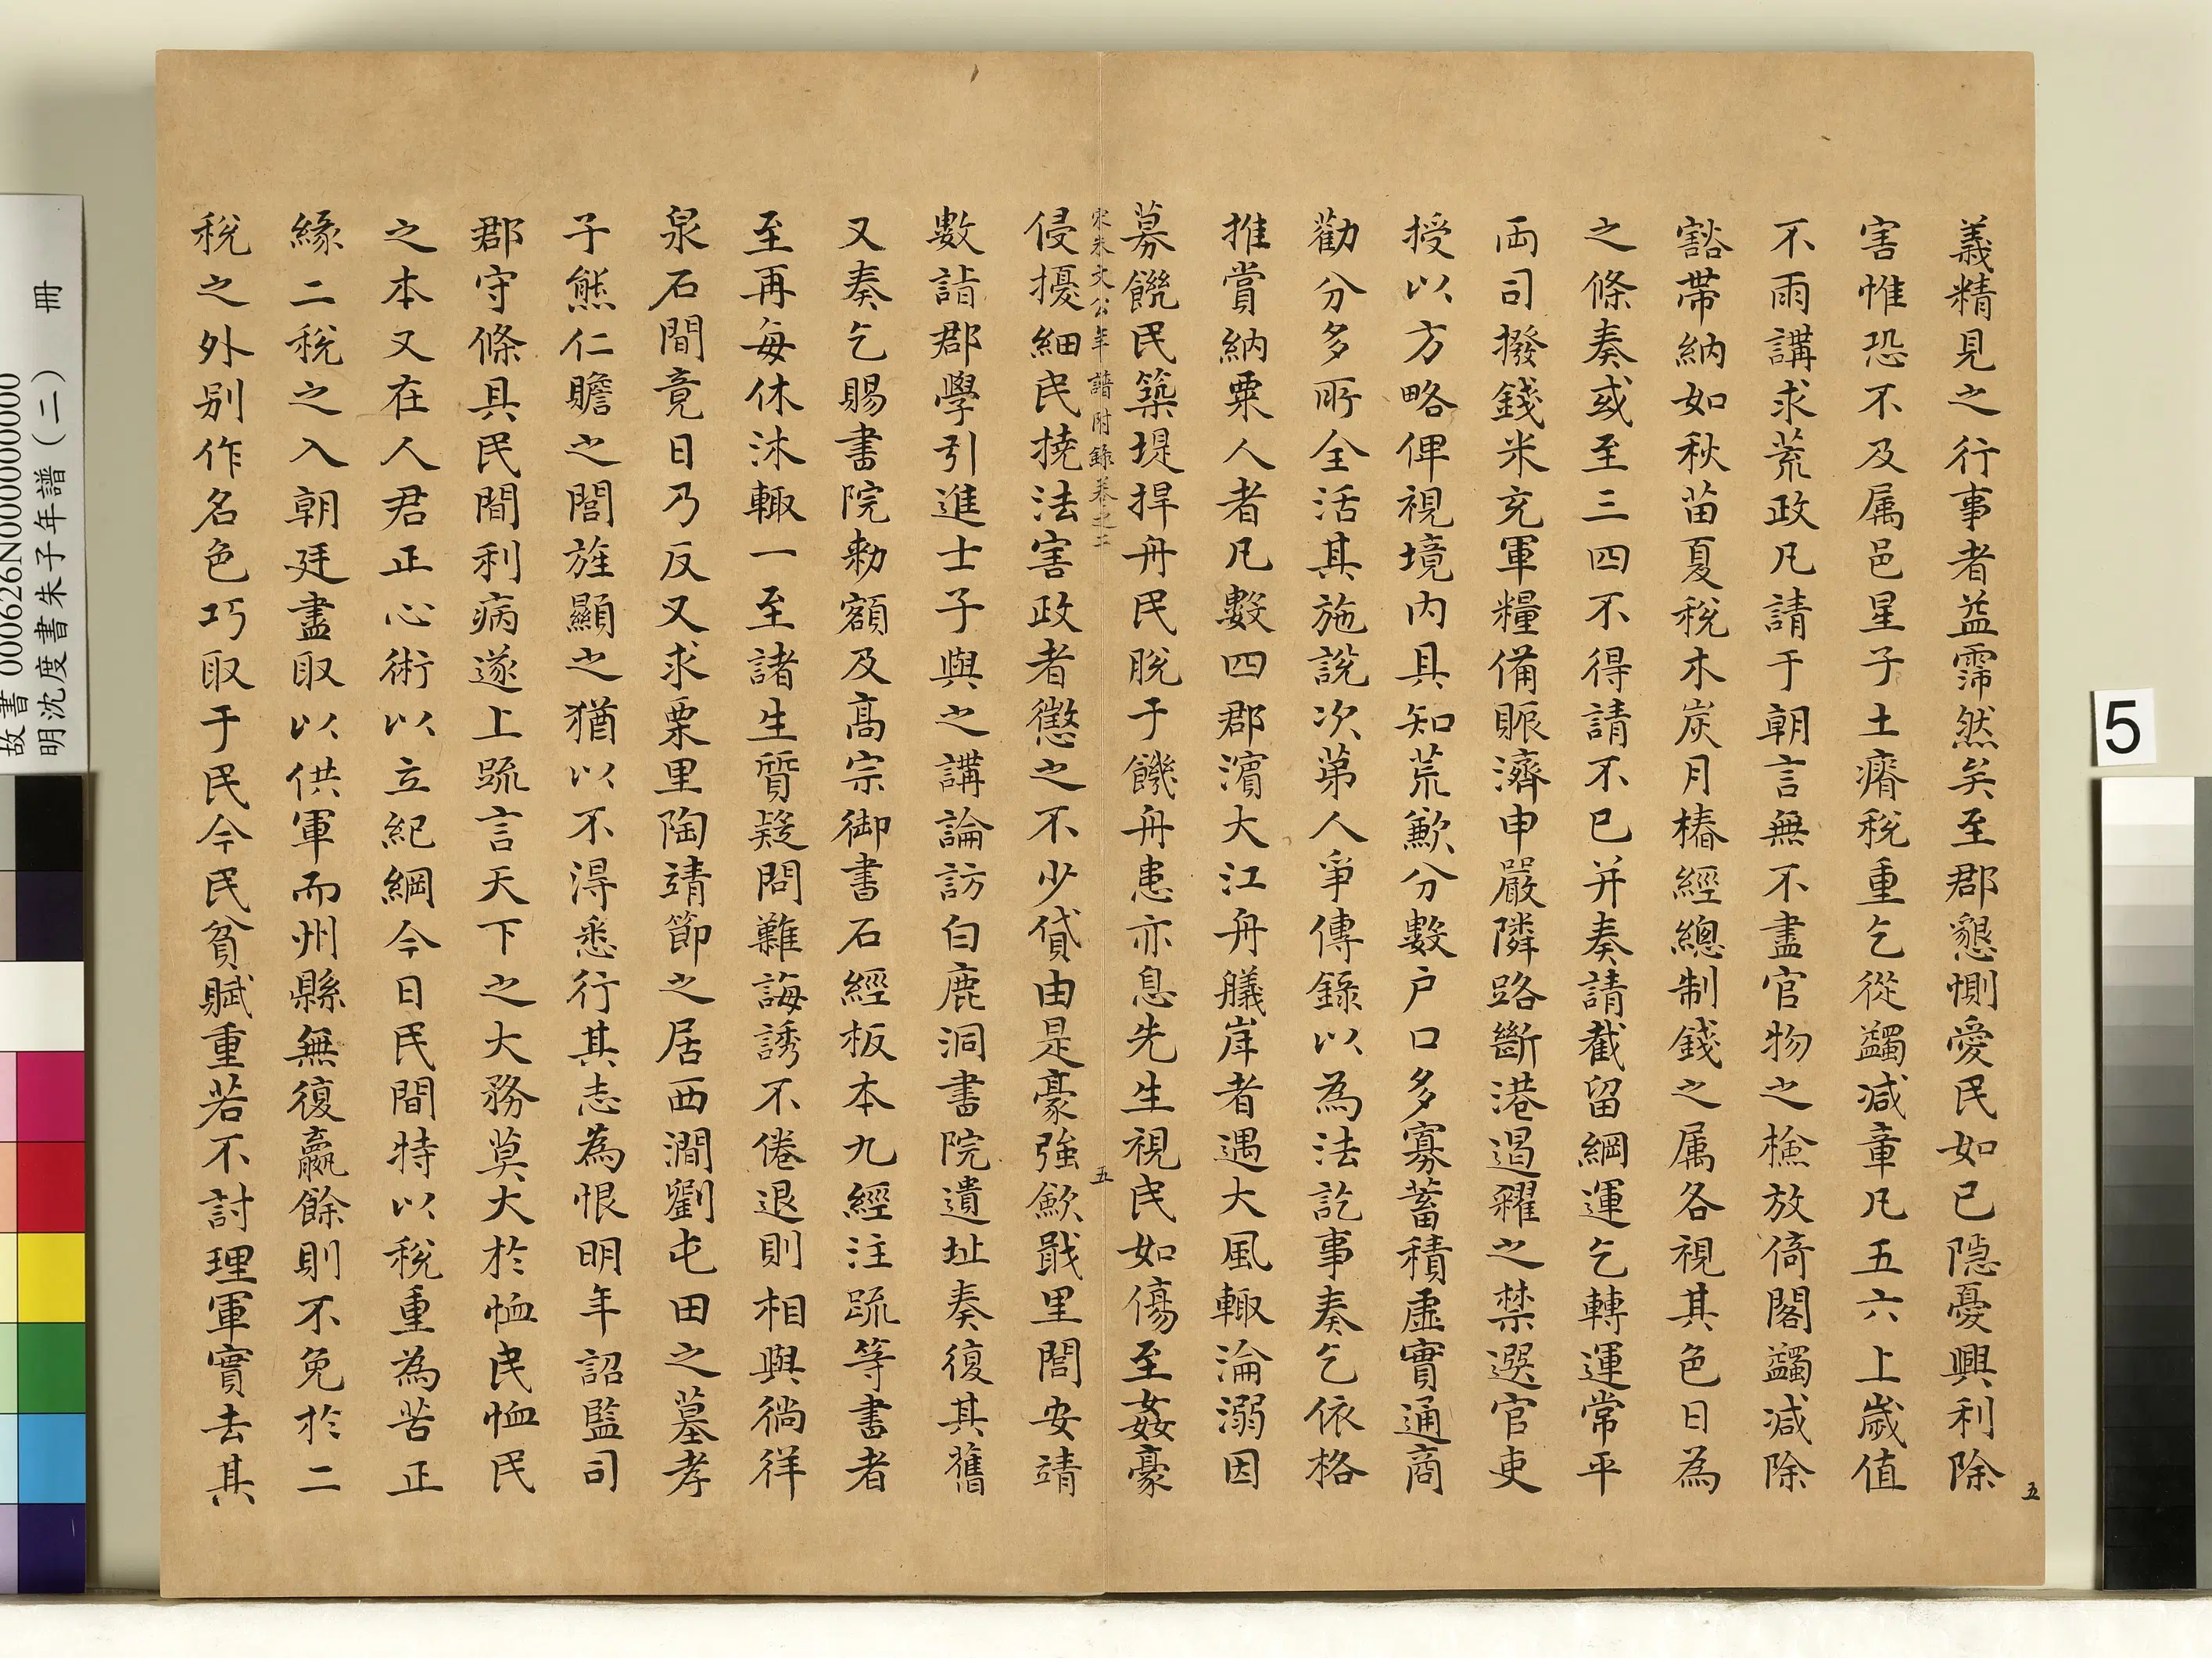 義精見之行事者益霈然矣至郡懇惻愛民如已隱憂興利除
害惟恐不及属邑星子土瘠稅重乞從蠲减章凡五六上歲值
不雨講求荒政凡請于朝言無不盡官物之檢放倚閣蠲减除
豁帶納如秋苗夏稅木炭月樁經總制錢之属各視其色目為
之條奏或至三四不得請不已并奏請截留綱運乞轉運常平
両司撥錢米充軍糧備賑濟申嚴隣路斷港遏糴之禁選官吏
授以方略俾視境内具知荒歉分數户口多寡蓄積虛實通商
勸分多所全活其施說次第人爭傳錄以為法訖事奏乞依格
推賞納粟人者凡數四郡濱大江舟艤岸者遇大風輙淪溺因
募饑民築堤捍舟民脫于饑舟患亦息先生視民如傷至姦豪
宋朱文公年譜附錄卷之二 五
侵擾細民撓法害政者懲之不少貸由是豪強歛戢里閭安靖
數詣郡學引進士子與之講論訪白鹿洞書院遺址奏復其舊
又奏乞賜書院勑額及髙宗御書石經板本九經注疏等書者
至再每休沐輙一至諸生質疑問難誨誘不倦退則相與徜徉
泉石間竟日乃反又求栗里陶靖節之居西澗劉屯田之墓孝
子熊仁贍之閭旌顯之猶以不得悉行其志為恨明年詔監司
郡守條具民間利病遂上疏言天下之大務莫大於恤民恤民
之本又在人君正心術以立紀綱今日民間特以稅重為苦正
緣二稅之入朝廷盡取以供軍而州縣無復贏餘則不免於二
稅之外别作名色巧取于民今民貧賦重若不討理軍實去其
五
5
故書000626N000000000
明沈度書朱子年譜（二） 冊